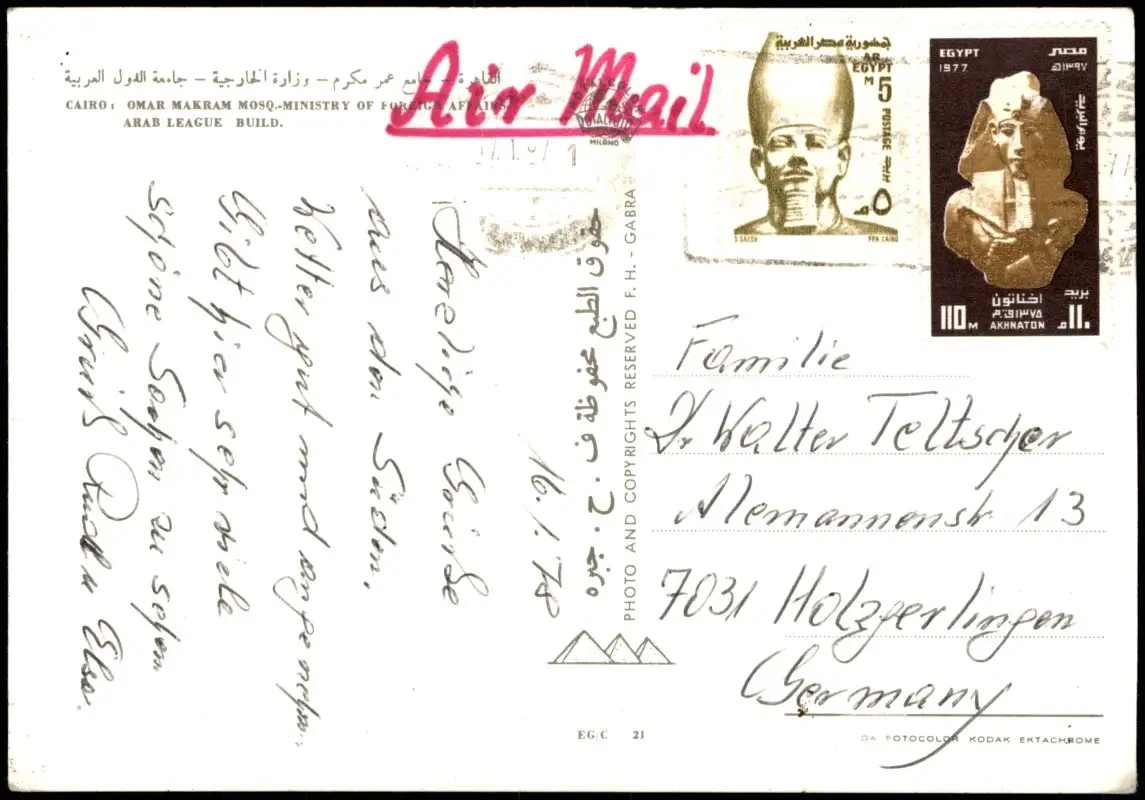 القاهرة – جامع عمر مكرم – وزارة الخارجية – جامعة الدول العربية
CAIRO: OMAR MAKRAM MOSQ.-MINISTRY OF FOREIGN AFFAIRS
ARAB LEAGUE BUILD.
Air Mail
MILANO
جمهورية مصر العربية
A.R.
EGYPT
M 5
POSTAGE
٥ م
S GAEDA
PPH CAIRO
EGYPT مصر
1977 ١٣٩٧هـ
بريد
اخناتون
١٣٧٥ق٠م
AKHNATON
110 M
١١٠ م
16.1.78
Herzliche Grüße
aus dem Süden.
Wetter gut und angenehm.
Gibt hier sehr viele
schöne Sachen zu sehen
Gruß Rudi u Elsa.
حقوق الطبع محفوظة ف . ح . جبره
PHOTO AND COPYRIGHTS RESERVED F. H. - GABRA
Familie
Dr Walter Teltscher
Alemannenstr 13
7031 Holzgerlingen
Germany
EG/C 21
DA FOTOCOLOR KODAK EKTACHROME